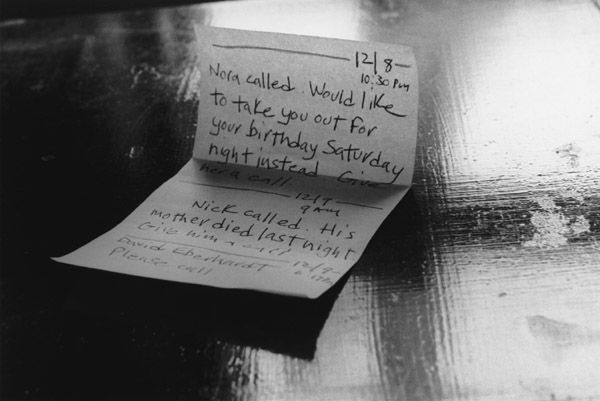 12/8
10:30 PM
Nora called. Would like
to take you out for
your birthday Saturday
night instead. Give
her a call
12/9
9 AM
Nick called. His
mother died last night
Give him a call
12/9
David Eberhardt
Please call